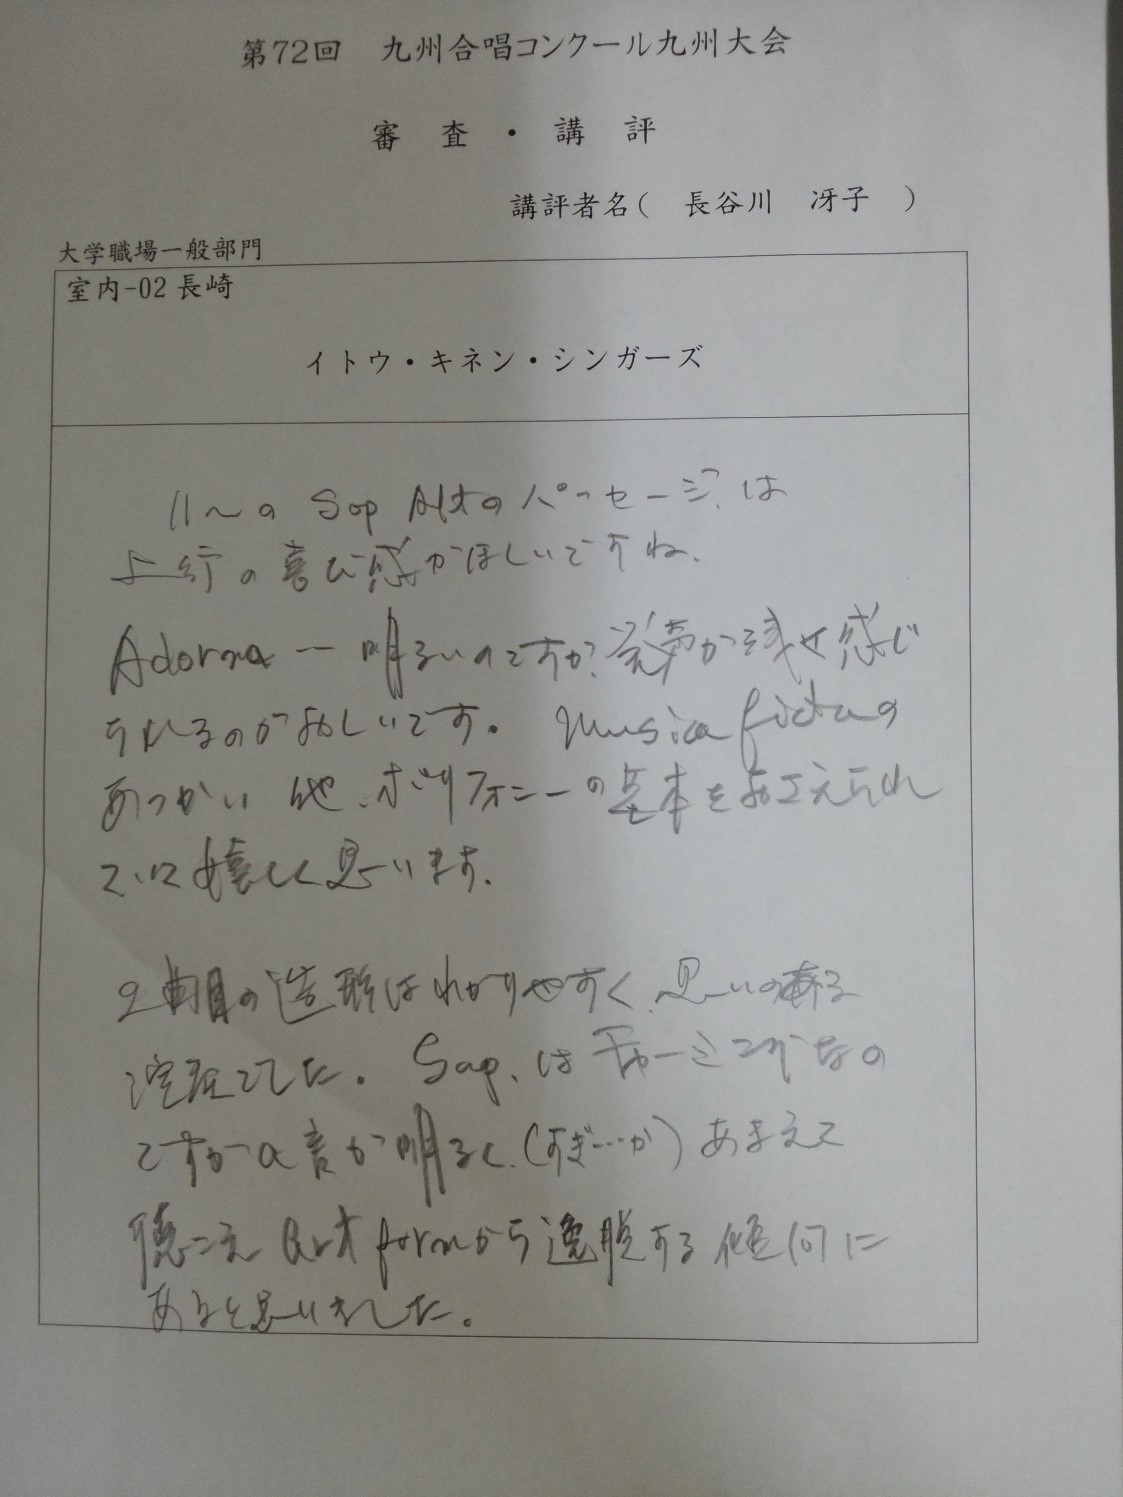 第72回 九州合唱コンクール九州大会
審査・講評
講評者名( 長谷川 冴子 )
大学職場一般部門
室内-02 長崎
イトウ・キネン・シンガーズ
11〜の Sop Altのパッセージは
上行の喜び感がほしいですね.
Adorna 明るいのですが? 発声が浅せ感じ
られるのがおしいです。 Musica fictaの
あつかい 他、ポリフォニーの基本をおさえられ
ていて嬉しく思います.
2曲目の造形はわかりやすく、思いの有る
演奏でした。 Sop. は チャーミングなの
ですがa音が明るく、(すぎ…か) あまえて
聴こえ formから逸脱する傾向に
あると思いました。